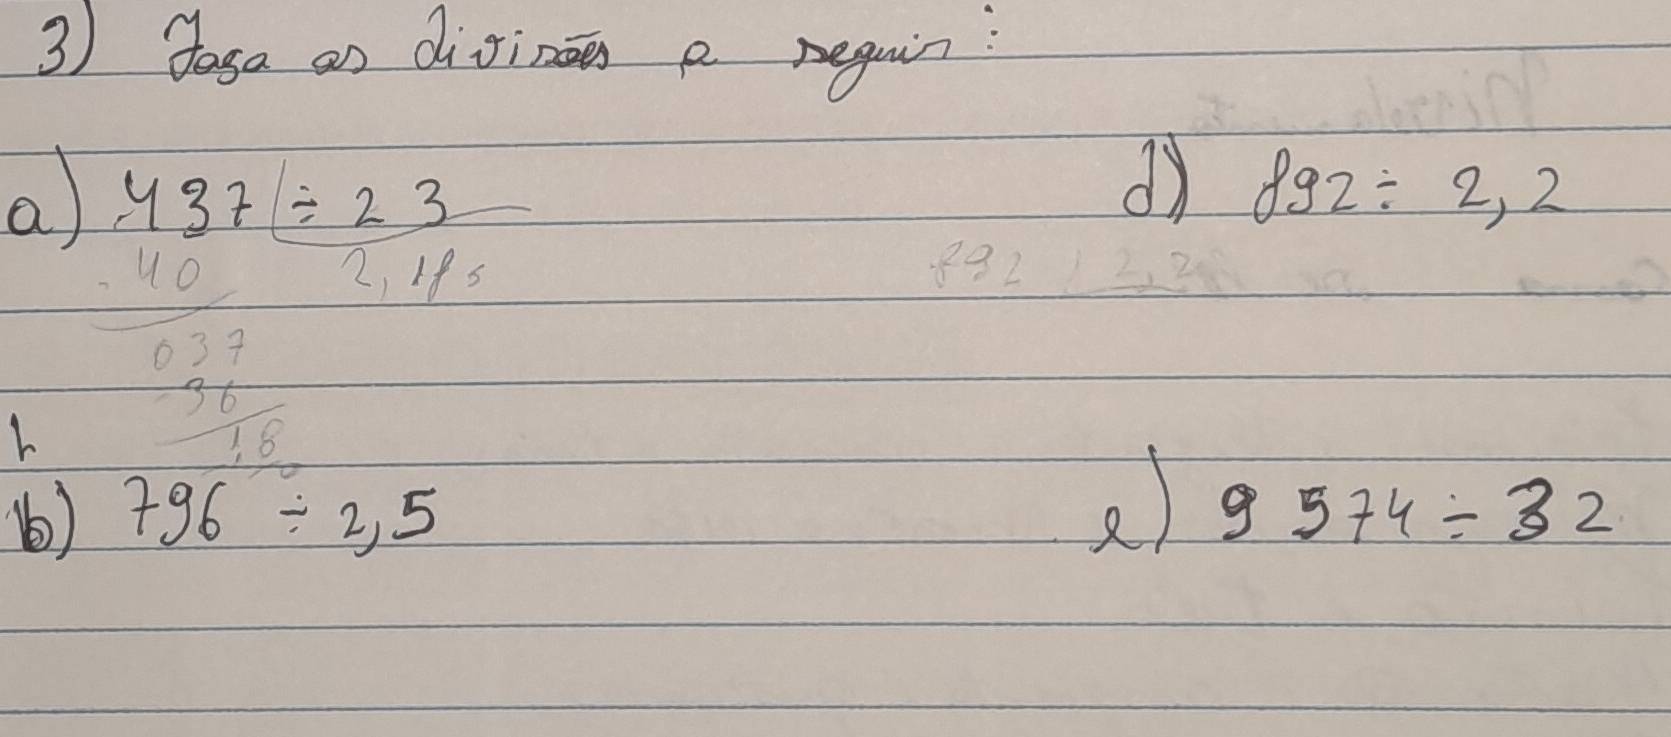 3) Faça as divisões a seguir:
a) 437 ÷ 23
d) 892 ÷ 2,2
40 2,185
892 2,2
037
36
18
b) 796 ÷ 2,5
e) 9 574 ÷ 32